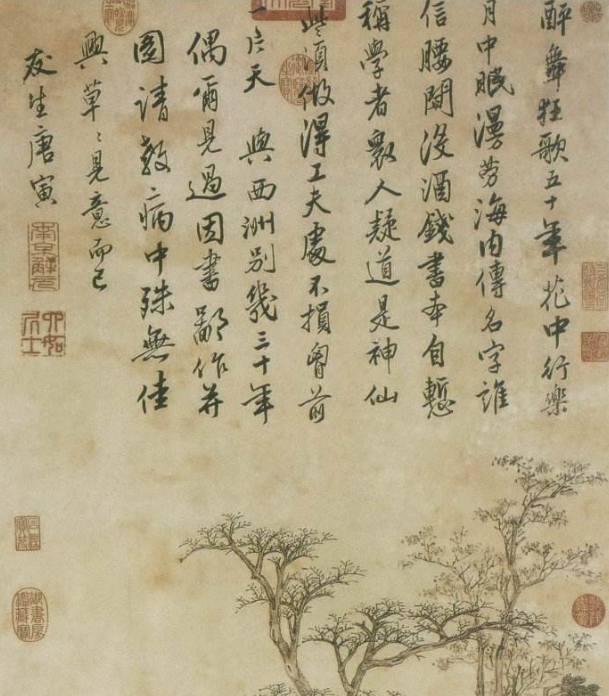 醉舞狂歌五十年花中行樂
月中眠漫勞海内傳名字誰
信腰間沒酒錢書本自慙
稱學者衆人疑道是神仙
些須做得工夫處不損胷前
一片天 與西洲別幾三十年
偶爾見過因書鄙作并
圖請教病中殊無佳
興草々見意而已
友生唐寅
南京解元
六如居士